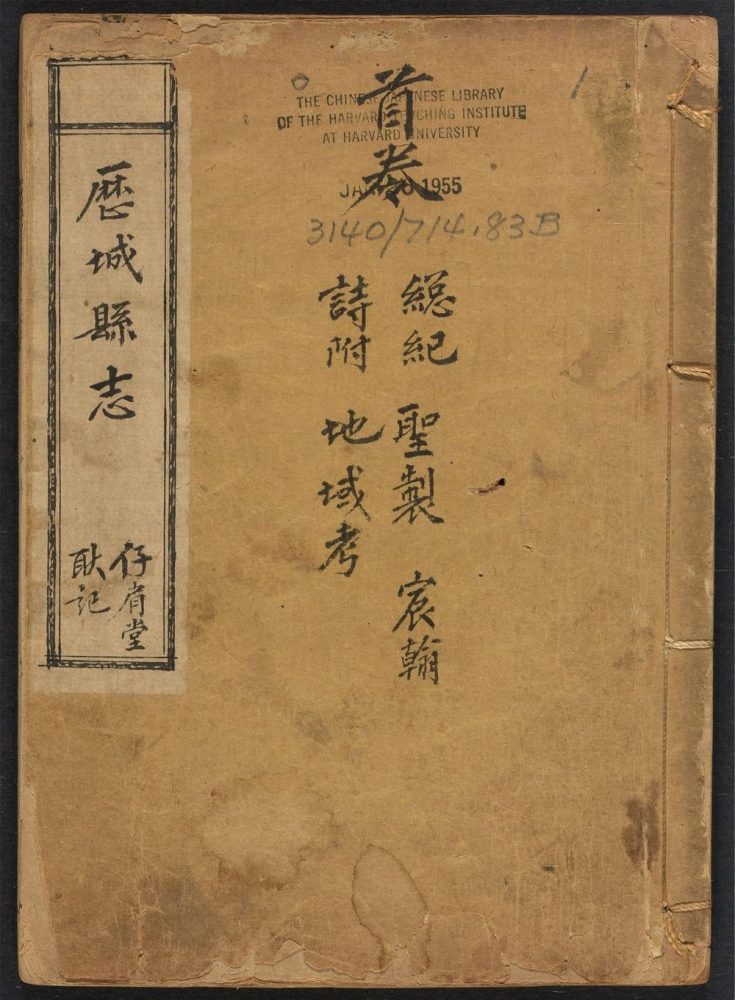 首卷
1
THE CHINESE-JAPANESE LIBRARY
OF THE HARVARD-YENCHING INSTITUTE
AT HARVARD UNIVERSITY
1955
3140/714.83B
緫紀 聖製 宸翰
詩附 地域考
歷城縣志
仔肩堂
耿記